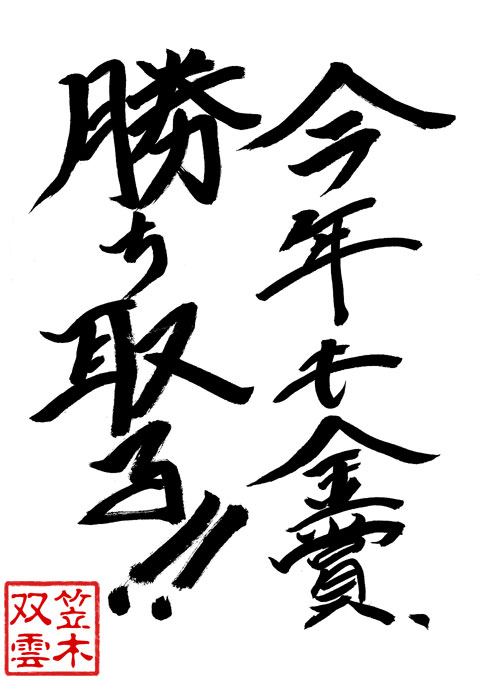 今年も金賞、
勝ち取る!!
笠木
双雲